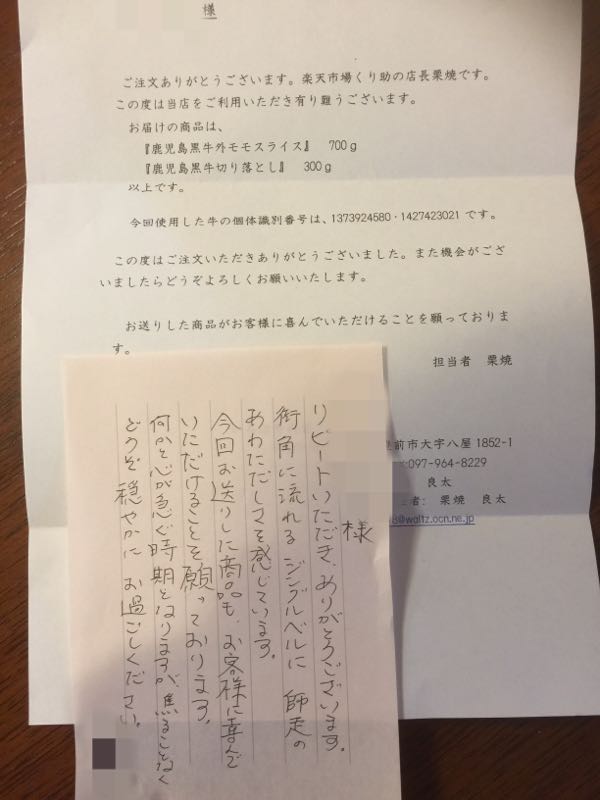 様
ご注文ありがとうございます。楽天市場くり助の店長栗焼です。
この度は当店をご利用いただき有り難うございます。
お届けの商品は、
『鹿児島黒牛外モモスライス』 700g
『鹿児島黒牛切り落とし』 300g
以上です。
今回使用した牛の個体識別番号は、1373924580・1427423021です。
この度はご注文いただきありがとうございました。また機会がござ
いましたらどうぞよろしくお願いいたします。
お送りした商品がお客様に喜んでいただけることを願っておりま
す。
担当者 栗焼
前市大字八屋 1852-1
:097-964-8229
良太
者: 栗焼 良太
8@waltz.ocn.ne.jp
様
リピートいただき、ありがとうございます。
街角に流れるジングルベルに 師走の
あわただしさを感じています。
今回お送りした商品も、お客様に喜んで
いただけることを願っております。
何かと心が急ぐ時期となりますが、焦ることなく
どうぞ穏やかにお過ごしください。